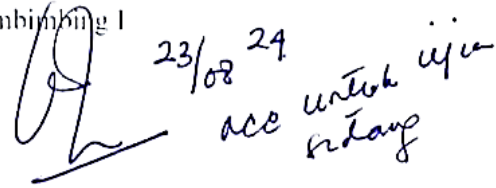 mbimbing 1
23/08 24
acc untuk ujian
sidang